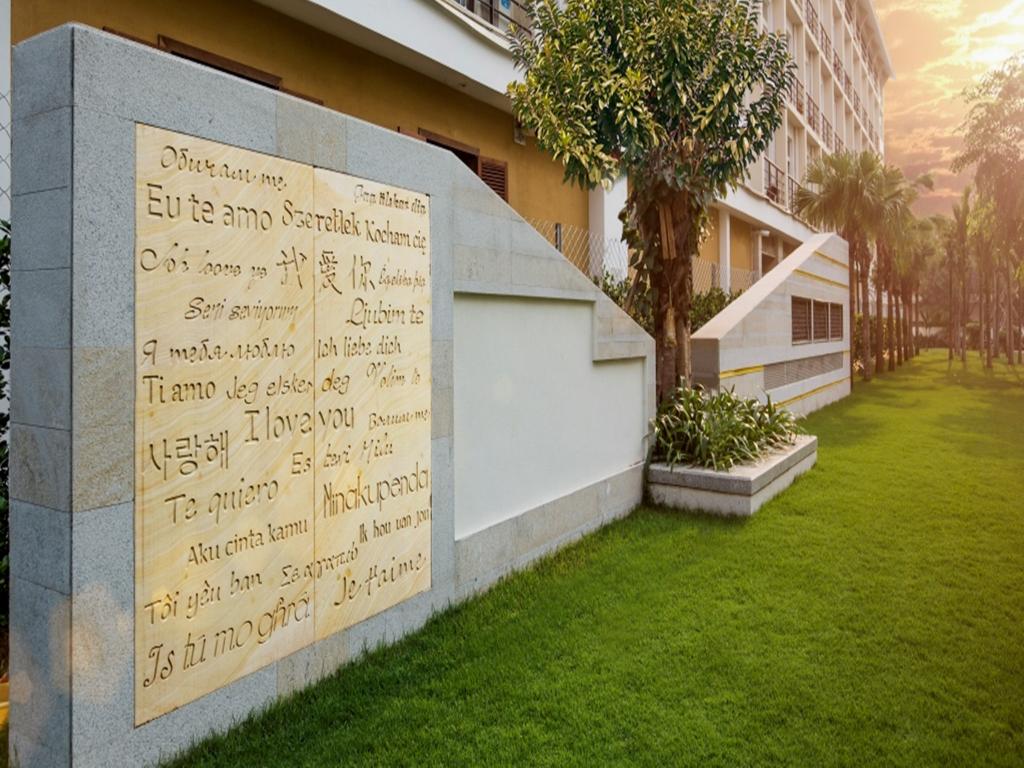 Обичам те
Eu te amo Szeretlek Kocham cię
我 愛 你
Seni seviyorum Ljubim te
Я тебя люблю Ich liebe dich
Ti amo Jeg elsker deg Volim te
I love you
사랑해
Te quiero Ninakupenda
Aku cinta kamu Ik hou van jou
Tôi yêu bạn Σε αγαπώ Je t'aime
Is tú mo ghrá